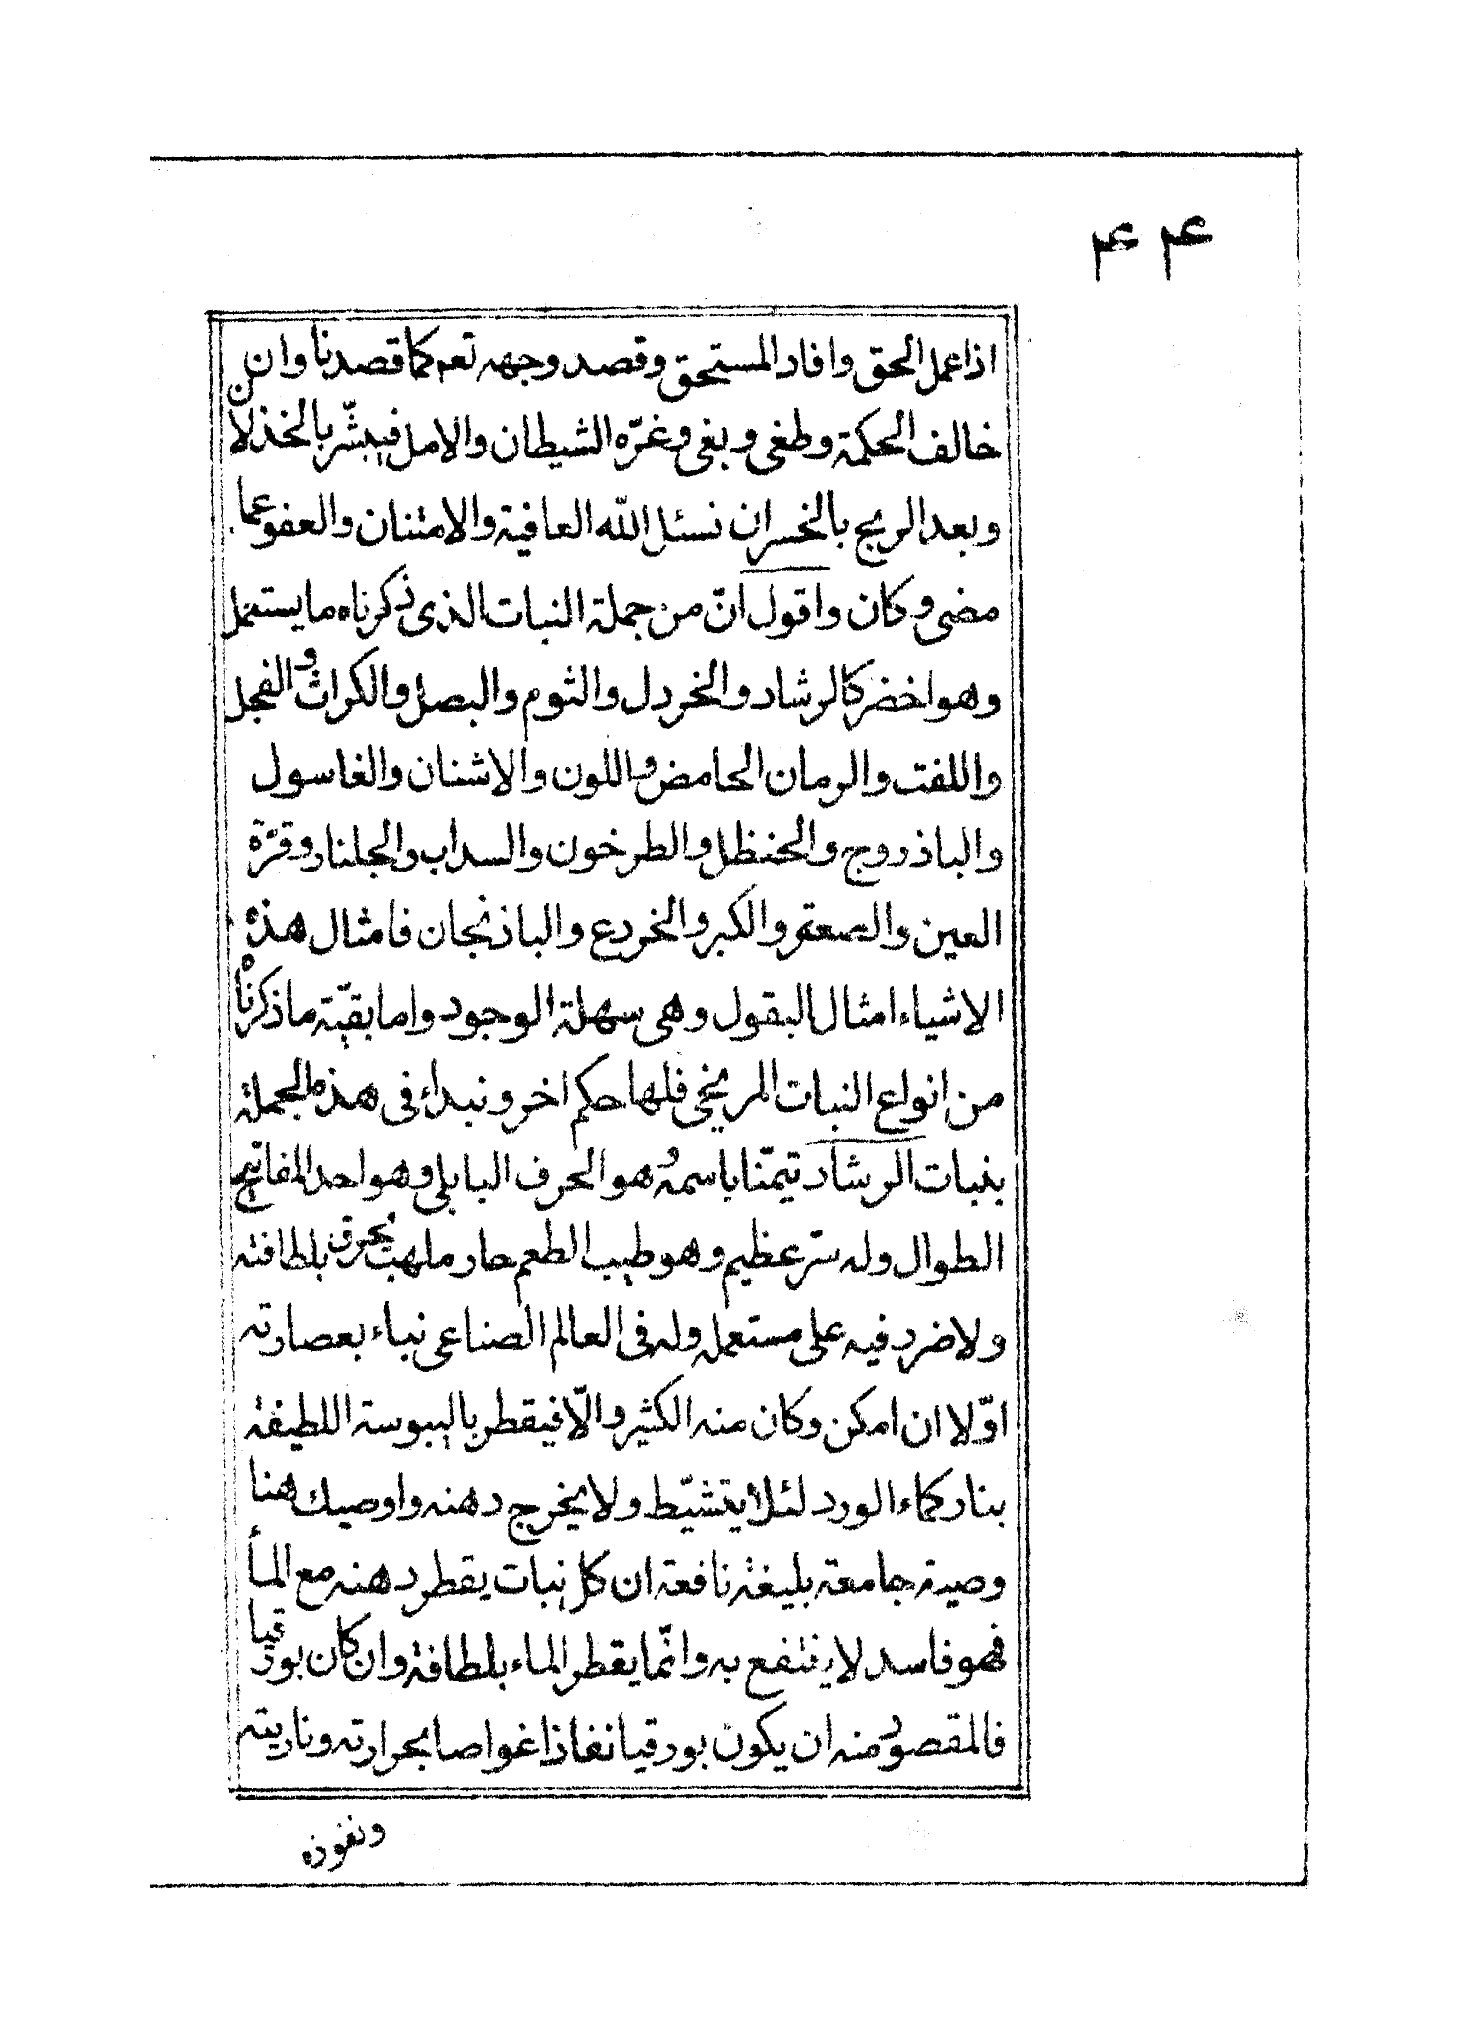 ۴۴
اذا عمل الحق وافاد المستحق وقصد وجهه تعم كما قصدنا وان
خالف الحكمة وطغى وبغى وغرّه الشيطان والامل فيبشّر بالخذلان
وبعد الربح بالخسران نسئل الله العافية والامتنان والعفو عما
مضى وكان واقول انّ من جملة النبات الذى ذكرناه ما يستعمل
وهو اخضر كالرشاد والخردل والثوم والبصل والكراث والفجل
واللفت والرمان الحامض واللون والاشنان والغاسول
والباذروج والحنظل والطرخون والسداب والجلنار وقرّة
العين والصعتر والكبر والخردع والباذنجان فامثال هذه
الاشياء امثال البقول وهى سهلة الوجود واما بقيّة ما ذكرناه
من انواع النبات المريخى فلها حكم اخر ونبداء فى هذه الجملة
بنبات الرشاد تيمّنا باسمه وهو الحرف البابلى وهو احد المفاتيح
الطوال وله سرّ عظيم وهو طيب الطعم حار ملهب يحرق بلطافته
ولا ضرر فيه على مستعمله وله فى العالم الصناعى نباء بعصارته
اوّلا ان امكن وكان منه الكثير والّا فيقطر باليبوسة اللطيفة
بنار كماء الورد لئلا يتشيّط ولا يخرج دهنه واوصيك هنا
وصية جامعة بليغة نافعة ان كل نبات يقطر دهنه مع المأ
فهو فاسد لا ينتفع به وانّما يقطر الماء بلطافة وان كان بورقيا
فالمقصود منه ان يكون بورقيا نفاذا غواصا بحرارته وناريته
ونفوذه